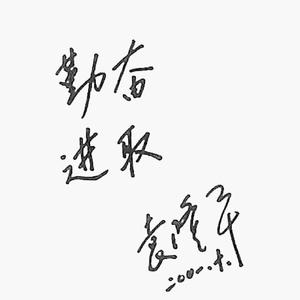 勤奋
进取
袁隆平
2001.